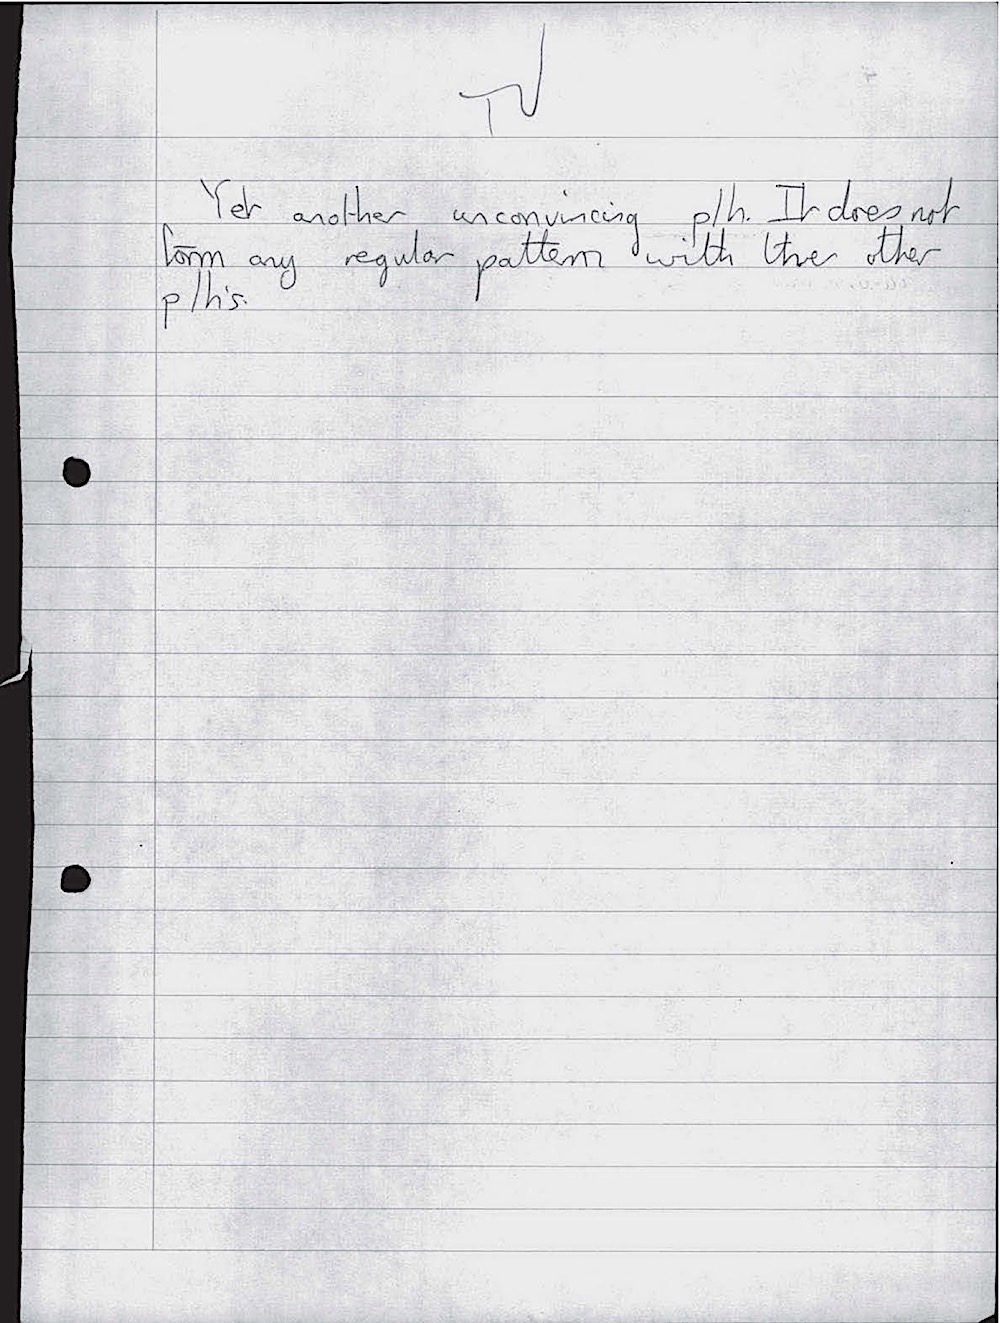 Yet another unconvincing p/h. It does not
form any regular pattern with the other
p/h's.